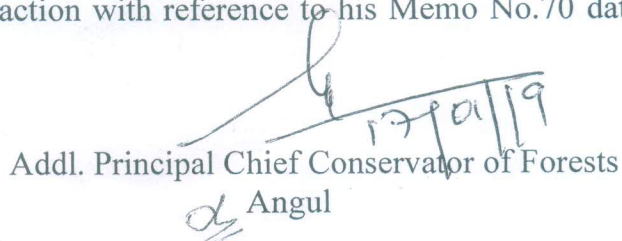 action with reference to his Memo No.70 dat
17/01/19
Addl. Principal Chief Conservator of Forests
Angul